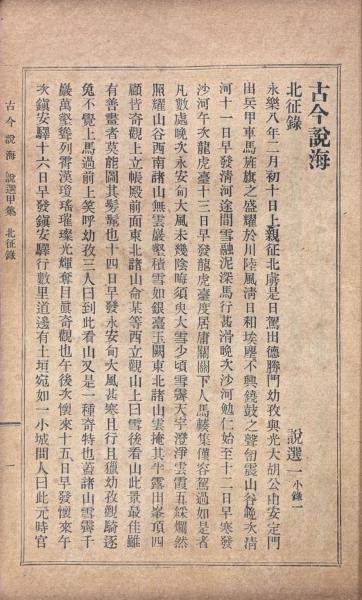 古今說海
北征錄
說選一 小錄一
永樂八年二月初十日上親征北虜是日駕出德勝門幼孜與光大胡公由安定門
出兵甲車馬旌旗之盛耀於川陸風淸日和埃塵不興鐃鼓之聲訇震山谷晚次淸
河十一日早發淸河途間雪融泥深馬行甚滑晚次沙河勉仁始至十二日早寒發
沙河午次龍虎臺十三日早發龍虎臺度居庸關關下人馬輳集僅容駕過如是者
凡數處晚次永安甸大風未幾陰晦須臾大雪少頃雪霽天宇澄淨雲霞五綵爛然
照耀山谷西南諸山無雲巖壑積雪如銀臺玉闕東北諸山雲掩其半露出峯頂四
顧皆奇觀上立帳殿前面東北諸山命某等西立觀山上曰雪後看山此景最佳雖
有善畫者莫能圖其髣髴也十四日早發永安甸大風甚寒且行且獵幼孜觀騎逐
兔不覺上馬過前上笑呼幼孜三人曰到此看山又是一種奇特也蓋諸山雪霽千
巖萬壑聳列霄漢瓊瑤璀璨光輝奪目眞奇觀也午後次懷來十五日早發懷來午
次鎭安驛十六日早發鎭安驛行數里道邊有土垣宛如一小城間人曰此元時官
古今說海 說選甲集 北征錄
一